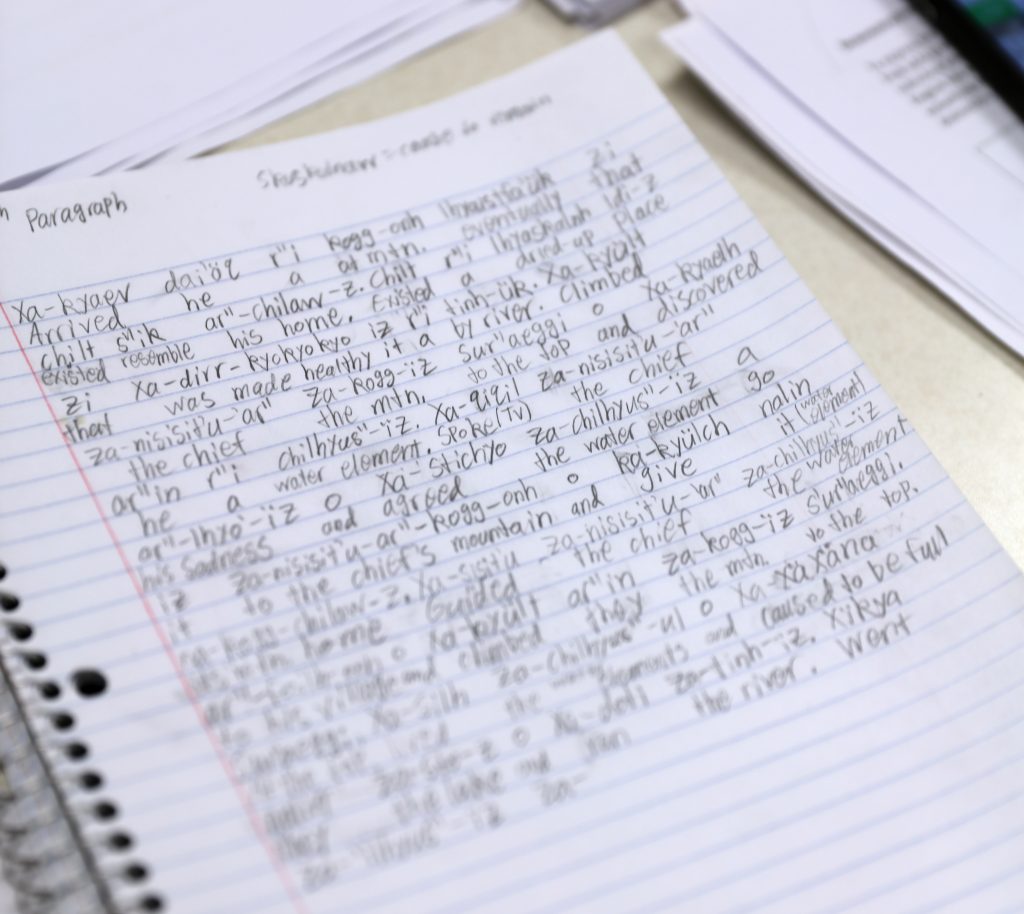 Paragraph
cause to remain
xa-kyaev dai'öq r"i kogg-onh lhraustfaüh zi
Arrived he a at mtn. eventually that
chilt s"ik ar"-chilaw-z. Chilt r"i lhraskalnh ldi-z
existed resemble his home. Existed a dried-up place
zi xa-dirr-kyokyokyo iz r"i tinh-ük. Xa-kyült
that was made healthy it a by river. Climbed
za-nisisit'u-'ar" za-kogg-iz sur"aeggi o xa-kyaelh
the chief the mtn. to the top and discovered
ar"in r"i chilhyus"-iz. Xa-qiqil za-nisisit'u-'ar"
he a water element. Spoke(TV) the chief
ar"-lhyo'-iz o xa-stichyo za-chilhyus"-iz a
his sadness and agreed the water element go
iz za-nisisit'u-ar"-kogg-onh o ka-kyülch nalin
it to the chief's mountain and give it (water element)
chilaw-z. Xa-sisitu za-nisisit'u-'ar" za-chilhyus"-iz
mtn. home Guided the chief the water element
o xa-kyült ar"in za-kogg-iz sur"aeggi.
to his village and climbed they the mtn. to the top.
Xa-silh za-chilhyus"-ul o xa-xaxäna
lived the water elements and caused to be full
o xa-doll za-tinh-iz. Xikya
the lake and ran the river. Went
za- iz za-